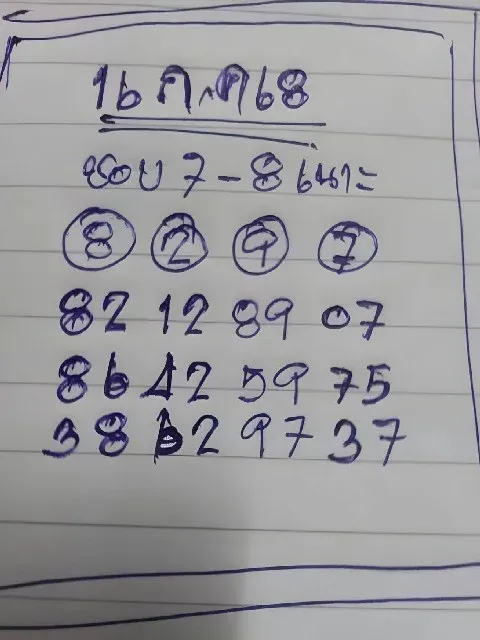 16 ก.ค68
ชอบ 7-8 เน้าะ
8 2 9 7
82 12 89 07
86 42 59 75
38 62 97 37